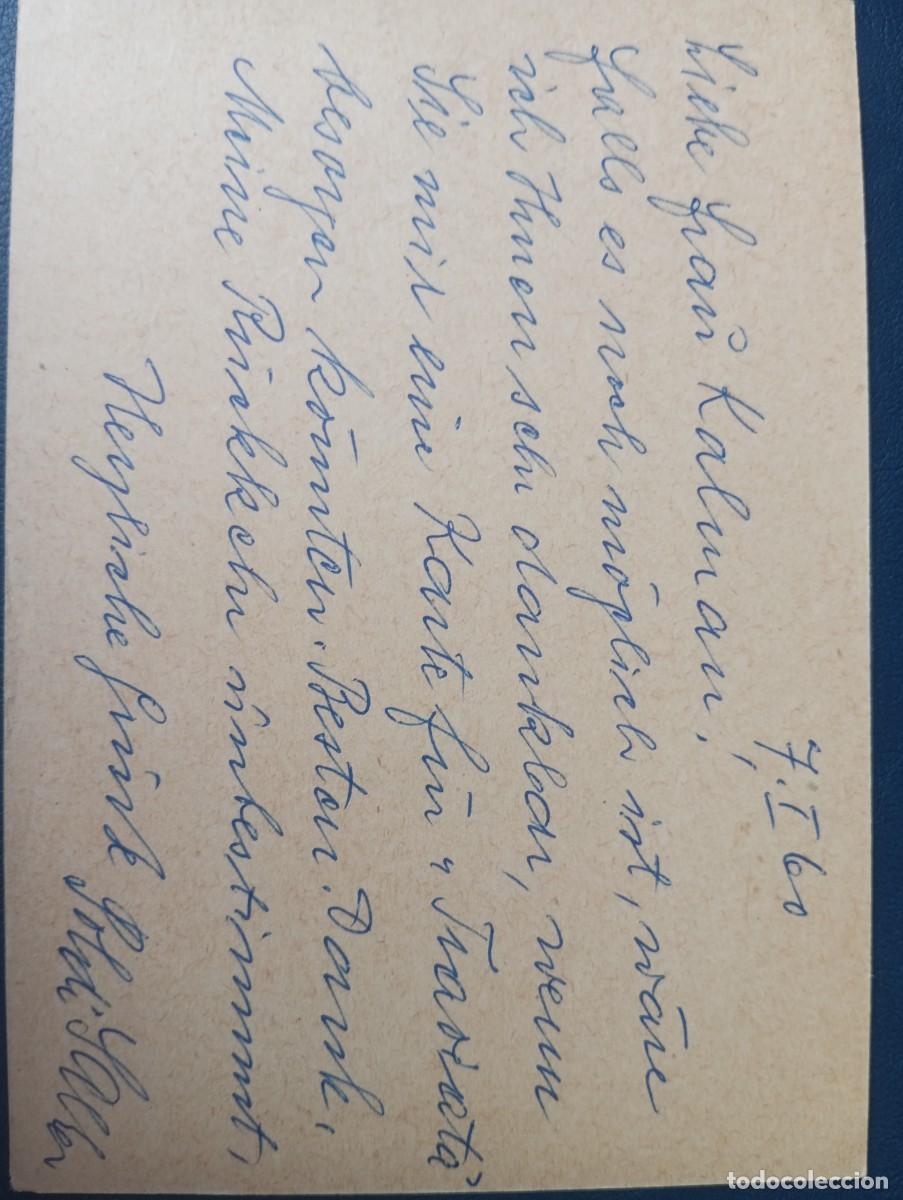 7. I 60
Liebe Frau Kalman!
Falls es noch möglich ist, wäre
ich Ihnen sehr dankbar, wenn
Sie mir eine Karte für „Traviata"
besorgen könnten. Besten Dank,
Meine Rückkehr unbestimmt,
Herzliche Grüße
todocoleccion